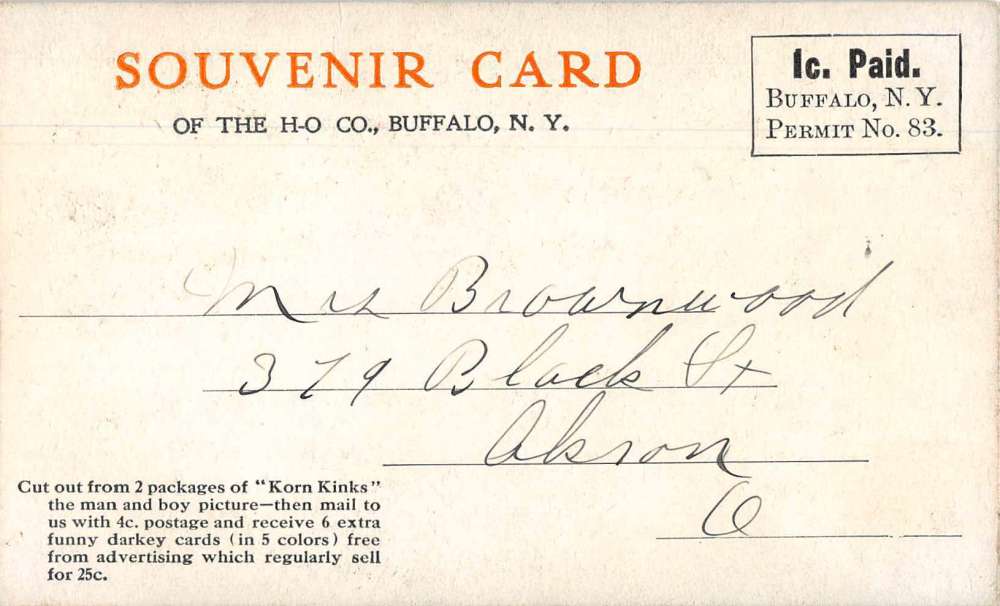 SOUVENIR CARD
OF THE H-O CO., BUFFALO, N. Y.
1c. Paid.
BUFFALO, N. Y.
PERMIT NO. 83.
Mrs Brownwood
379 Black St
Akron
O
Cut out from 2 packages of "Korn Kinks"
the man and boy picture—then mail to
us with 4c. postage and receive 6 extra
funny darkey cards (in 5 colors) free
from advertising which regularly sell
for 25c.